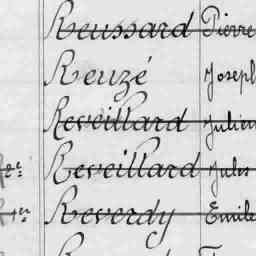 Reussard Pierre
Reuzé Joseph
Reveillard Julien
Reveillard Jules
Reverdy Emile